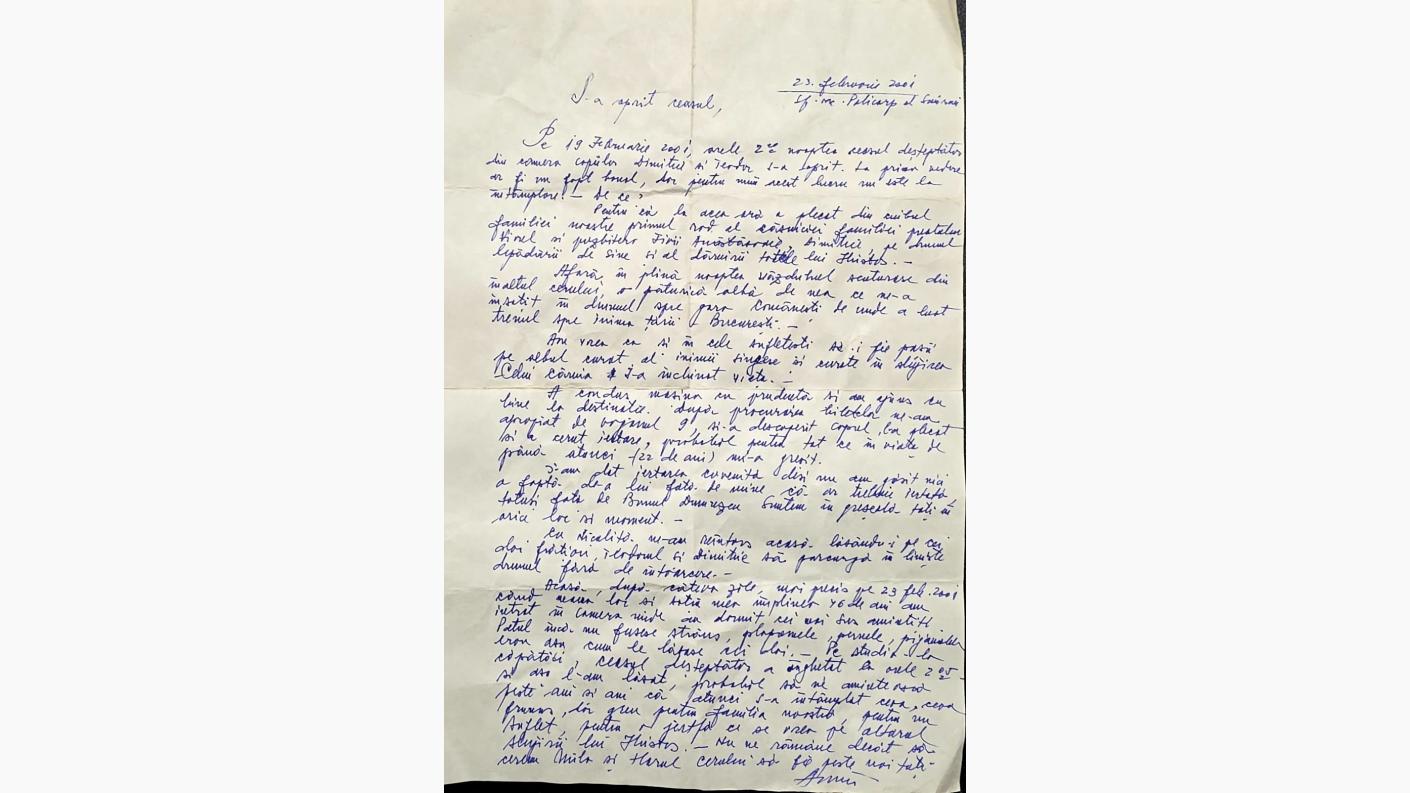 23. februarie 2001
Sf. mc. Policarp al Smirnei
S-a oprit ceasul,
Pe 19 Februarie 2001, orele 2 noaptea ceasul deșteptător
din camera copiilor Dimitrie si Teodor s-a oprit. La prima vedere
ar fi un fapt banal, dar pentru mine acest lucru nu este la
întâmplare! – De ce?
Pentru că la acea oră a plecat din cuibul
familiei noastre primul rod al căsniciei familiei preotului
Viorel si prezbitera Dimitrie, pe drumul
lepădării de sine si al dăruirii totale lui Hristos. –
Afară în plină noaptea văzduhul scuturase din
înaltul cerului, o păturică albă de nea ce ne-a
însotit în drumul spre gara Comănesti de unde a luat
trenul spre inima țării București. –
Am vrea ca si în cele sufletesti să-i fie pasii
pe albul curat al inimii sincere si curate în slujirea
Celui căruia I-a închinat viața. –
A condus masina cu prudentă si am ajuns cu
bine la destinatie. După procurarea biletelor ne-am
apropiat de vagonul 9, si-a descoperit capul, s-a plecat
si a cerut iertare, probabil pentru tot ce în viata de
până atunci (22 de ani) mi-a gresit.
I-am dat iertarea cuvenită desi nu am găsit nici
o faptă de-a lui fată de mine că ar trebuie iertată,
totusi fată de Bunul Dumnezeu suntem în greșeală toți în
orice loc si moment. –
Cu ne-am reîntors acasă lăsându-i pe cei
doi frătiori, Teodorul si Dimitrie să parcurgă în liniște
drumul fără de întoarcere. –
Acasă, după câteva zile, mai precis pe 23 feb. 2001
când avea loc si sotia mea împlinea 46 de ani am
intrat în camera unde au dormit cei mai sus amintiti
Patul încă nu fusese strâns, plapomele, pernele, pijamalele
erau asa cum le lăsase cei doi. – Pe studio la
căpătâi, ceasul deșteptător a înghetat la orele 2
si asa l-am lăsat, probabil să ne amintească
peste ani si ani că atunci s-a întâmplat ceva, ceva
frumos, dar greu pentru familia noastră, pentru un
suflet, pentru o jertfă ce se vrea pe altarul
slujirii lui Hristos. – Nu ne rămâne decât să
cerem Mila și Harul cerului să fie peste noi toți.
Amin